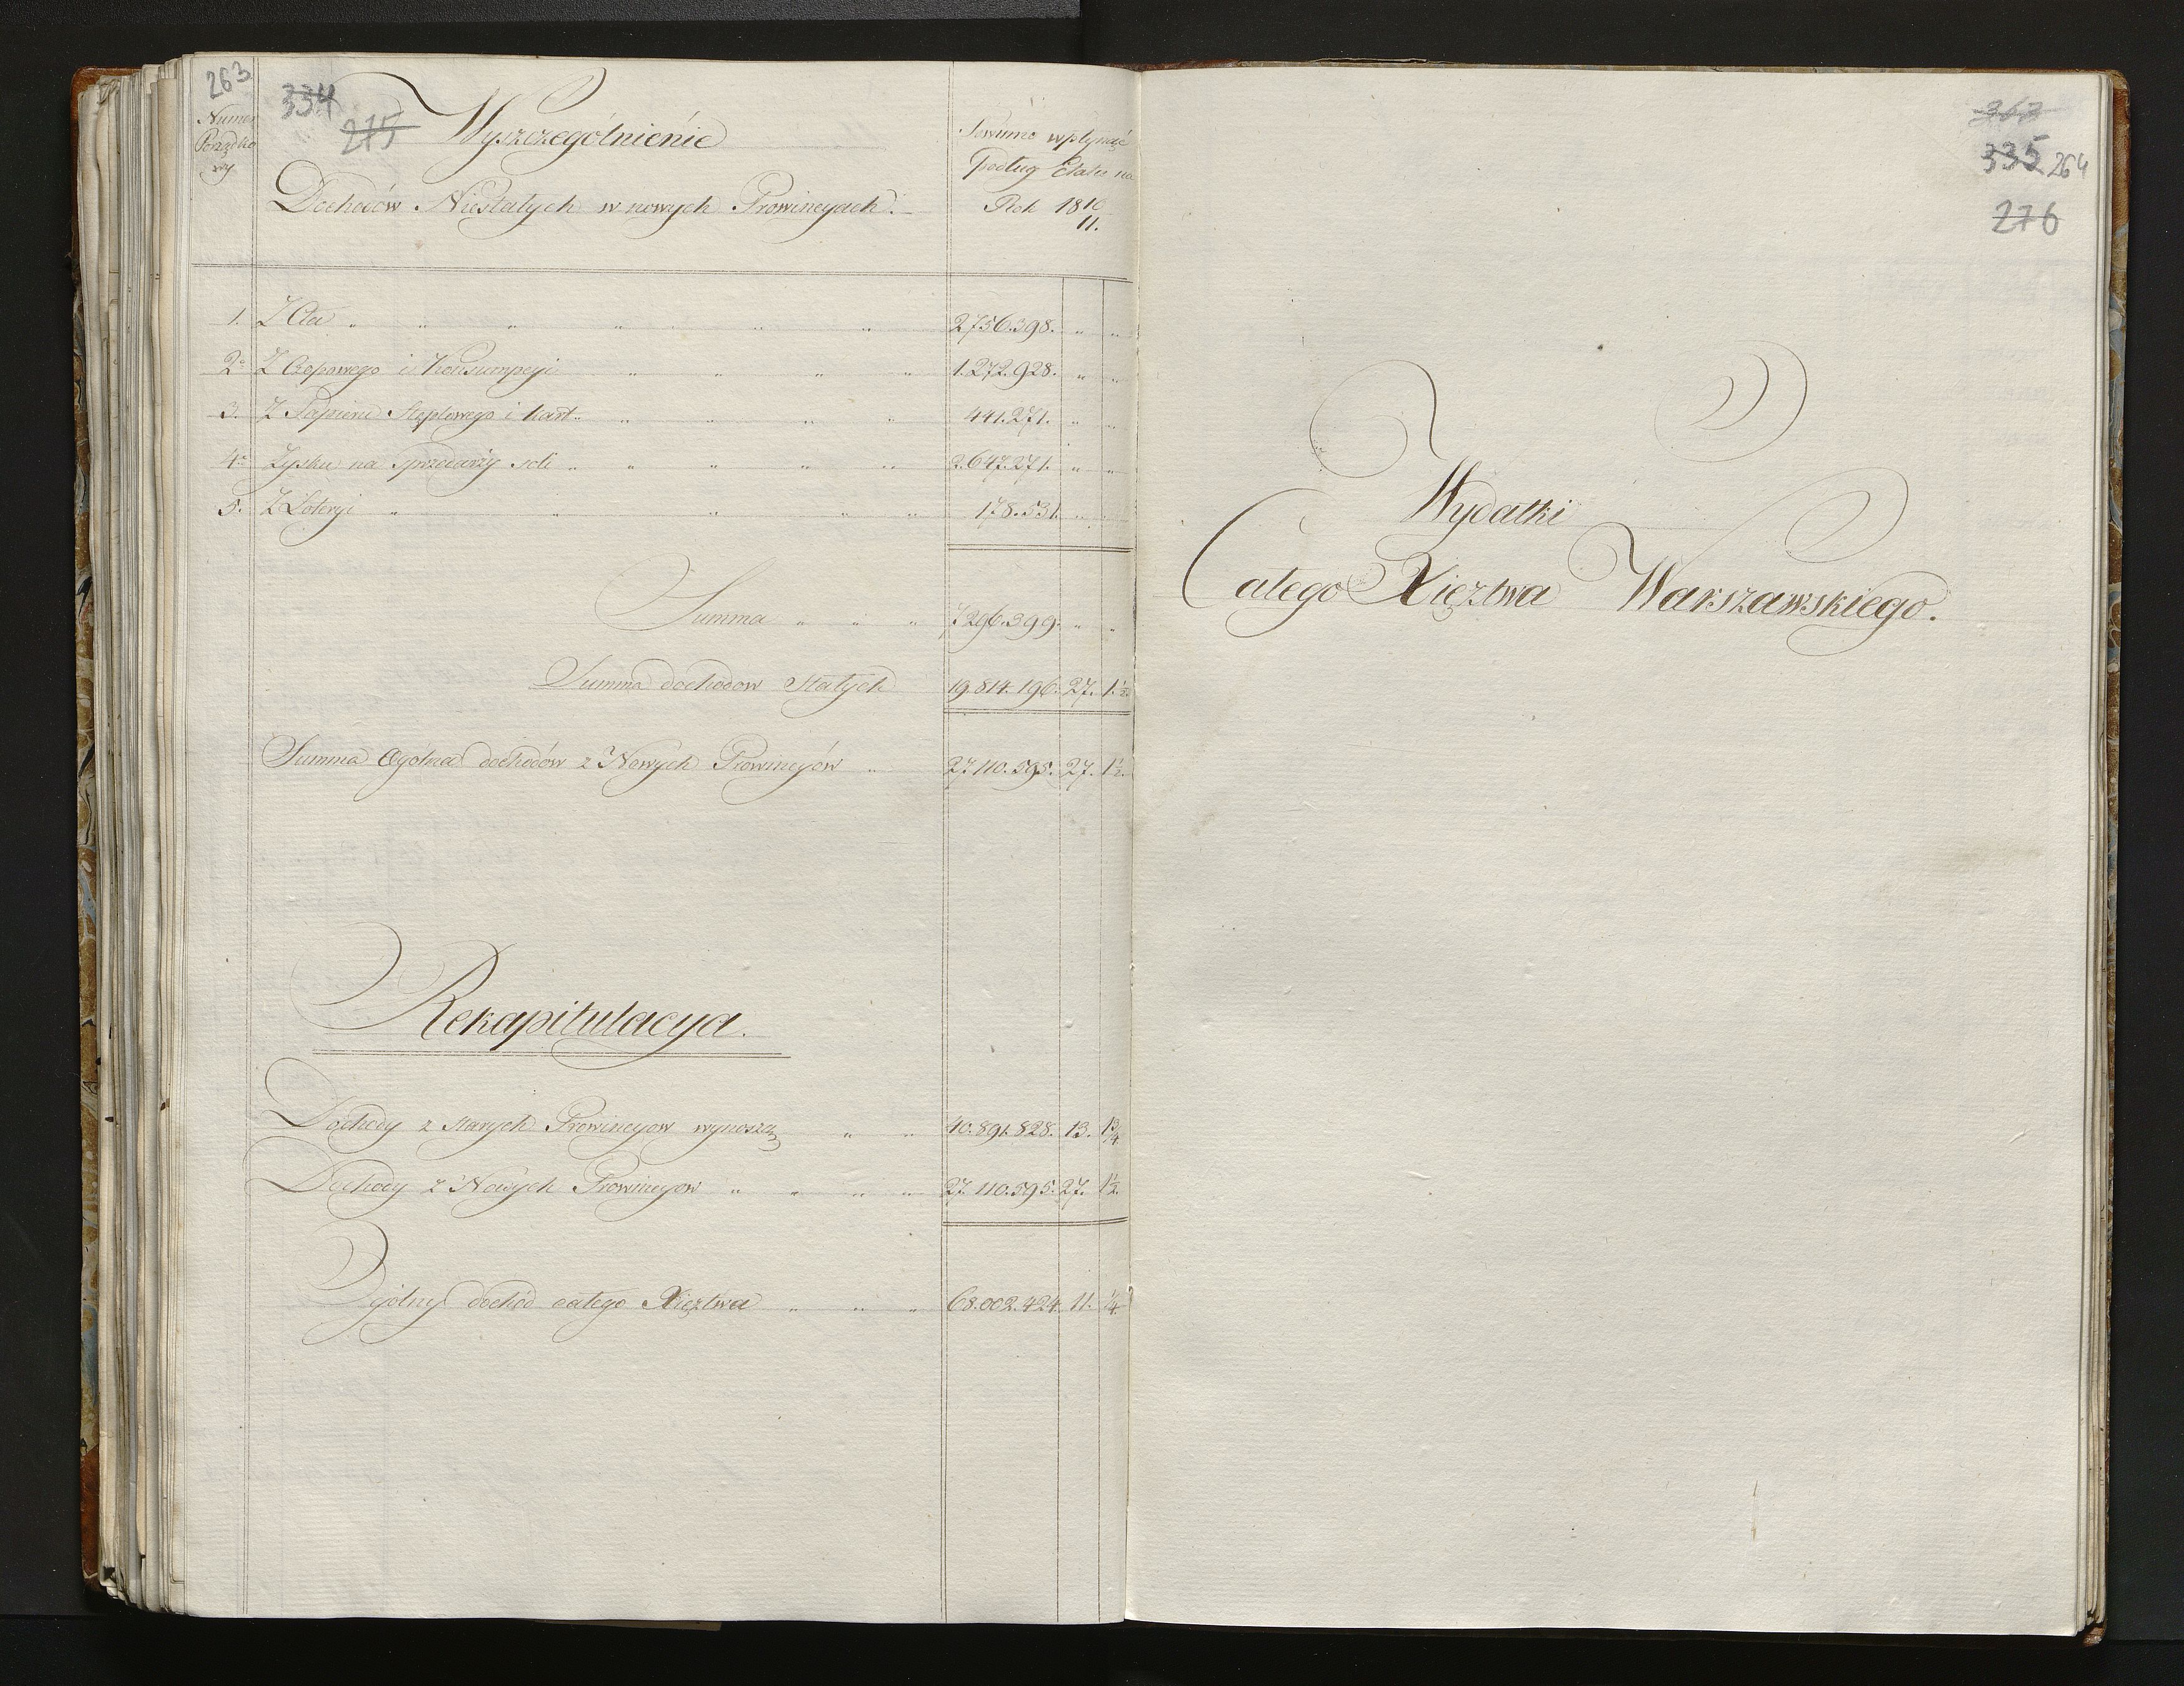 263
334
275
Numer
Porządko
wy
Wyszczególnienie
Dochodów Niestałych w nowych Prowincyach.
Powinno wpłynąć
podług Etatu na
Rok 1810
11.
1. Z Cła " " " " " " 2756.398. " "
2. Z Czopowego i Konsumpcyi " " " " 1.272.928. " "
3. Z Papieru Stęplowego i kart " " " " 441.271. " "
4. Zysku na sprzedaży soli " " " " " 2.647.271. " "
5. Z Loteryi " " " " " 178.531. " "
Summa " " " 7296.399. " "
Summa dochodow Stałych 19.814.196. 27. 1.½.
Summa Ogólna dochodów z Nowych Prowincyów " 27.110.595. 27. 1½.
Rekapitulacya.
Dochody z starych Prowincyow wynoszą " " 40.891.828. 13. 1¾.
Dochody z Nowych Prowincyow " " " " 27.110.595. 27. 1½.
Ogólny dochód całego Xięztwa " " " 68.002.424. 11. ¼.
363
335 264
276
Wydatki
Całego Xięztwa Warszawskiego.